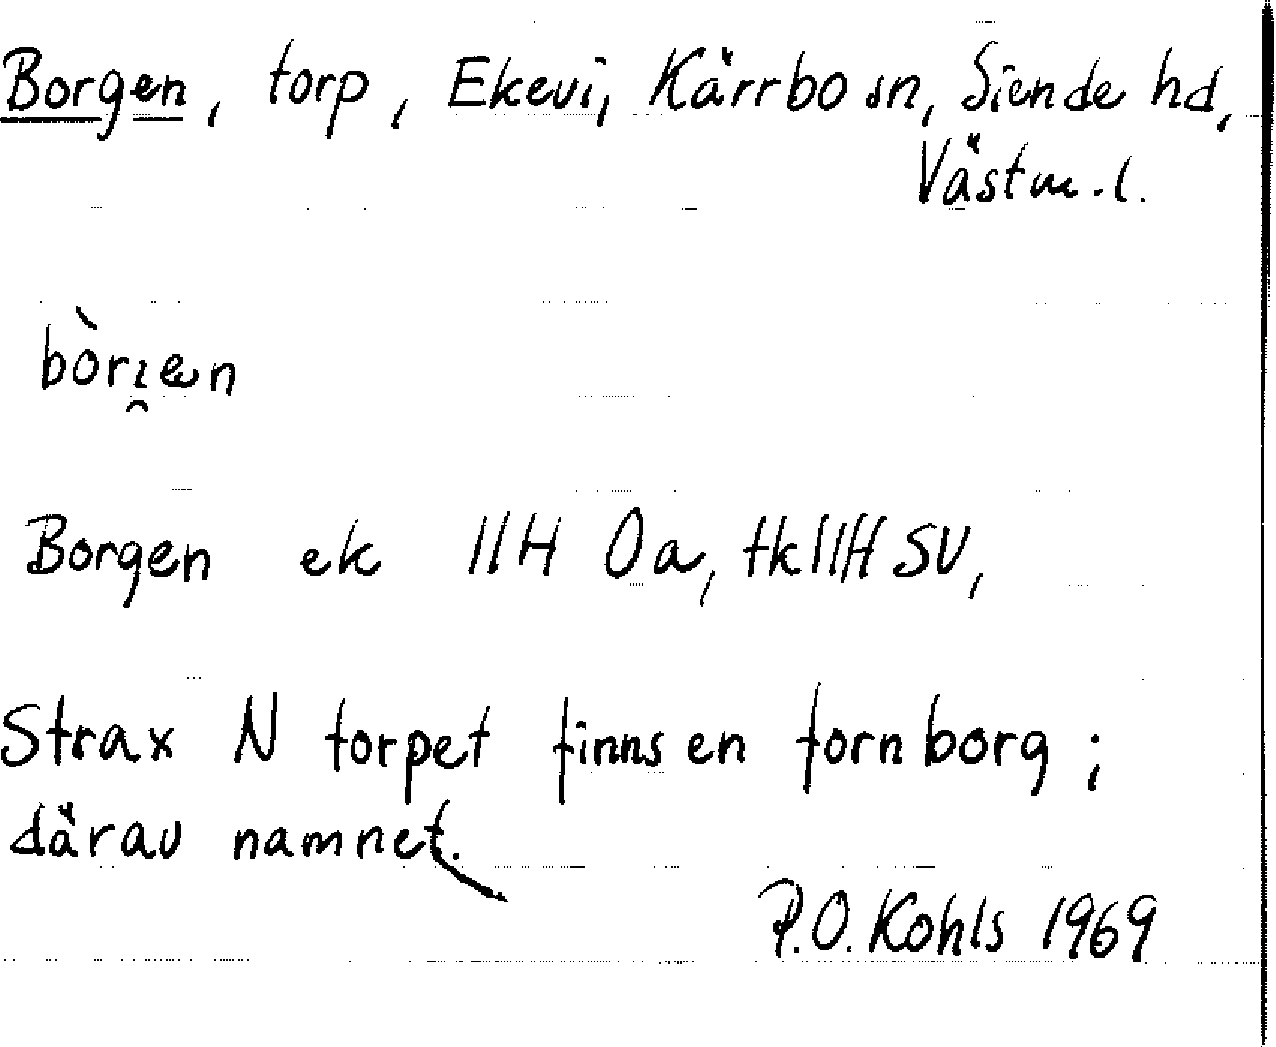 Borgen, torp, Ekevi, Kärrbo sn, Siende hd,
Västm. l.
bòri̯æn
Borgen ek 11H 0a, tk 11H SV,
Strax N torpet finns en fornborg;
därav namnet.
P.O. Kohls 1969